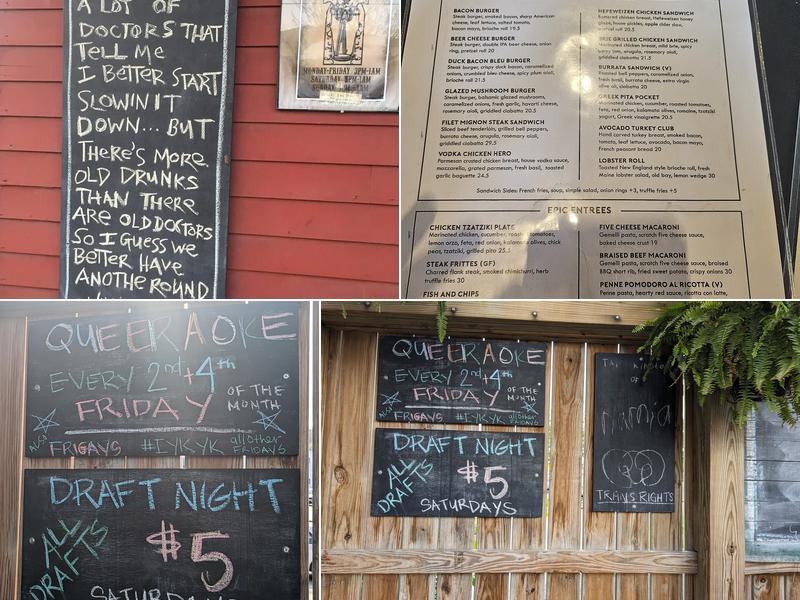 A LOT OF
DOCTORS THAT
TELL ME
I BETTER START
SLOWIN IT
DOWN... BUT
THERE'S MORE
OLD DRUNKS
THAN THERE
ARE OLD DOCTORS
SO I GUESS WE
BETTER HAVE
ANOTHE ROUND
MONDAY-FRIDAY 3PM-1AM
BACON BURGER
Steak burger, smoked bacon, sharp American
cheese, leaf lettuce, salted tomato,
bacon mayo, brioche roll 19.5
BEER CHEESE BURGER
Steak burger, double IPA beer cheese, onion
ring, pretzel roll 20
DUCK BACON BLEU BURGER
Steak burger, crispy duck bacon, caramelized
onions, crumbled bleu cheese, spicy plum aioli,
brioche roll 21.5
GLAZED MUSHROOM BURGER
Steak burger, balsamic glazed mushrooms,
caramelized onions, fresh garlic, havarti cheese,
rosemary aioli, griddled ciabatta 20.5
FILET MIGNON STEAK SANDWICH
Sliced beef tenderloin, grilled bell peppers,
burrata cheese, arugula, rosemary aioli,
griddled ciabatta 29.5
VODKA CHICKEN HERO
Parmesan crusted chicken breast, house vodka sauce,
mozzarella, grated parmesan, fresh basil, toasted
garlic baguette 24.5
HEFEWEIZEN CHICKEN SANDWICH
Battered chicken breast, Hefeweizen honey
glaze, house pickles, apple cider slaw,
pretzel roll 20.5
BRIE GRILLED CHICKEN SANDWICH
Marinated chicken breast, mild brie, spicy
jam, arugula, rosemary aioli,
griddled ciabatta 21.5
BURRATA SANDWICH (V)
Roasted bell peppers, caramelized onion,
fresh basil, burrata cheese, extra virgin
olive oil, ciabatta 20
GREEK PITA POCKET
Marinated chicken, cucumber, roasted tomatoes,
feta, red onion, kalamata olives, romaine, tzatziki
yogurt, Greek vinaigrette 20.5
AVOCADO TURKEY CLUB
Hand carved turkey breast, smoked bacon,
tomato, leaf lettuce, avocado, bacon mayo,
French peasant bread 20
LOBSTER ROLL
Toasted New England style brioche roll, fresh
Maine lobster salad, old bay, lemon wedge 30
Sandwich Sides: French fries, soup, simple salad, onion rings +3, truffle fries +5
EPIC ENTREES
CHICKEN TZATZIKI PLATE
Marinated chicken, cucumber, roasted tomatoes,
lemon orzo, feta, red onion, kalamata olives, chick
peas, tzatziki, grilled pita 25.5
STEAK FRITTES (GF)
Charred flank steak, smoked chimichurri, herb
truffle fries 30
FISH AND CHIPS
FIVE CHEESE MACARONI
Gemelli pasta, scratch five cheese sauce,
baked cheese crust 19
BRAISED BEEF MACARONI
Gemelli pasta, scratch five cheese sauce, braised
BBQ short rib, fried sweet potato, crispy onions 30
PENNE POMODORO AL RICOTTA (V)
Penne pasta, hearty red sauce, ricotta con latte,
QUEERAOKE
EVERY 2nd+4th
FRIDAY OF THE
MONTH
FRIGAYS #IYKYK all other
FRIDAYS
DRAFT NIGHT
ALL
DRAFTS
$5
SATURDAYS
QUEERAOKE
EVERY 2nd+4th
FRIDAY OF THE
MONTH
FRIGAYS #IYKYK all other
FRIDAYS
DRAFT NIGHT
ALL
DRAFTS
$5
SATURDAYS
TRANS RIGHTS